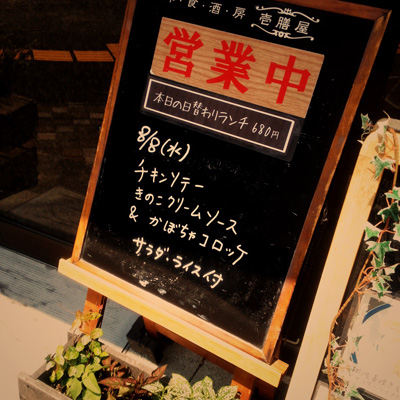 食・酒・房 壱膳屋
営業中
本日の日替わりランチ 680円
8/8(水)
チキンソテー
きのこクリームソース
& かぼちゃコロッケ
サラダ・ライス付